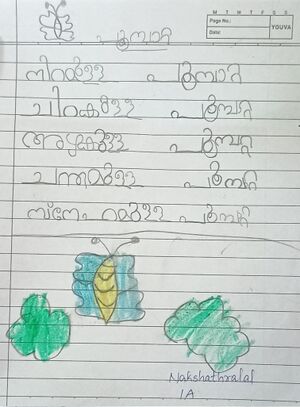 M T W T F S S
Page No.:
Date:
YOUVA
പൂമ്പാറ്റ
നിറമുള്ള പൂമ്പാറ്റ
ചിറകുള്ള പൂമ്പറ്റ
അഴകുള്ള പൂമ്പറ്റ
ചന്തമുള്ള പൂമ്പറ്റ
സ്നേഹമുള്ള പൂമ്പറ്റ
Nakshathralal
1A